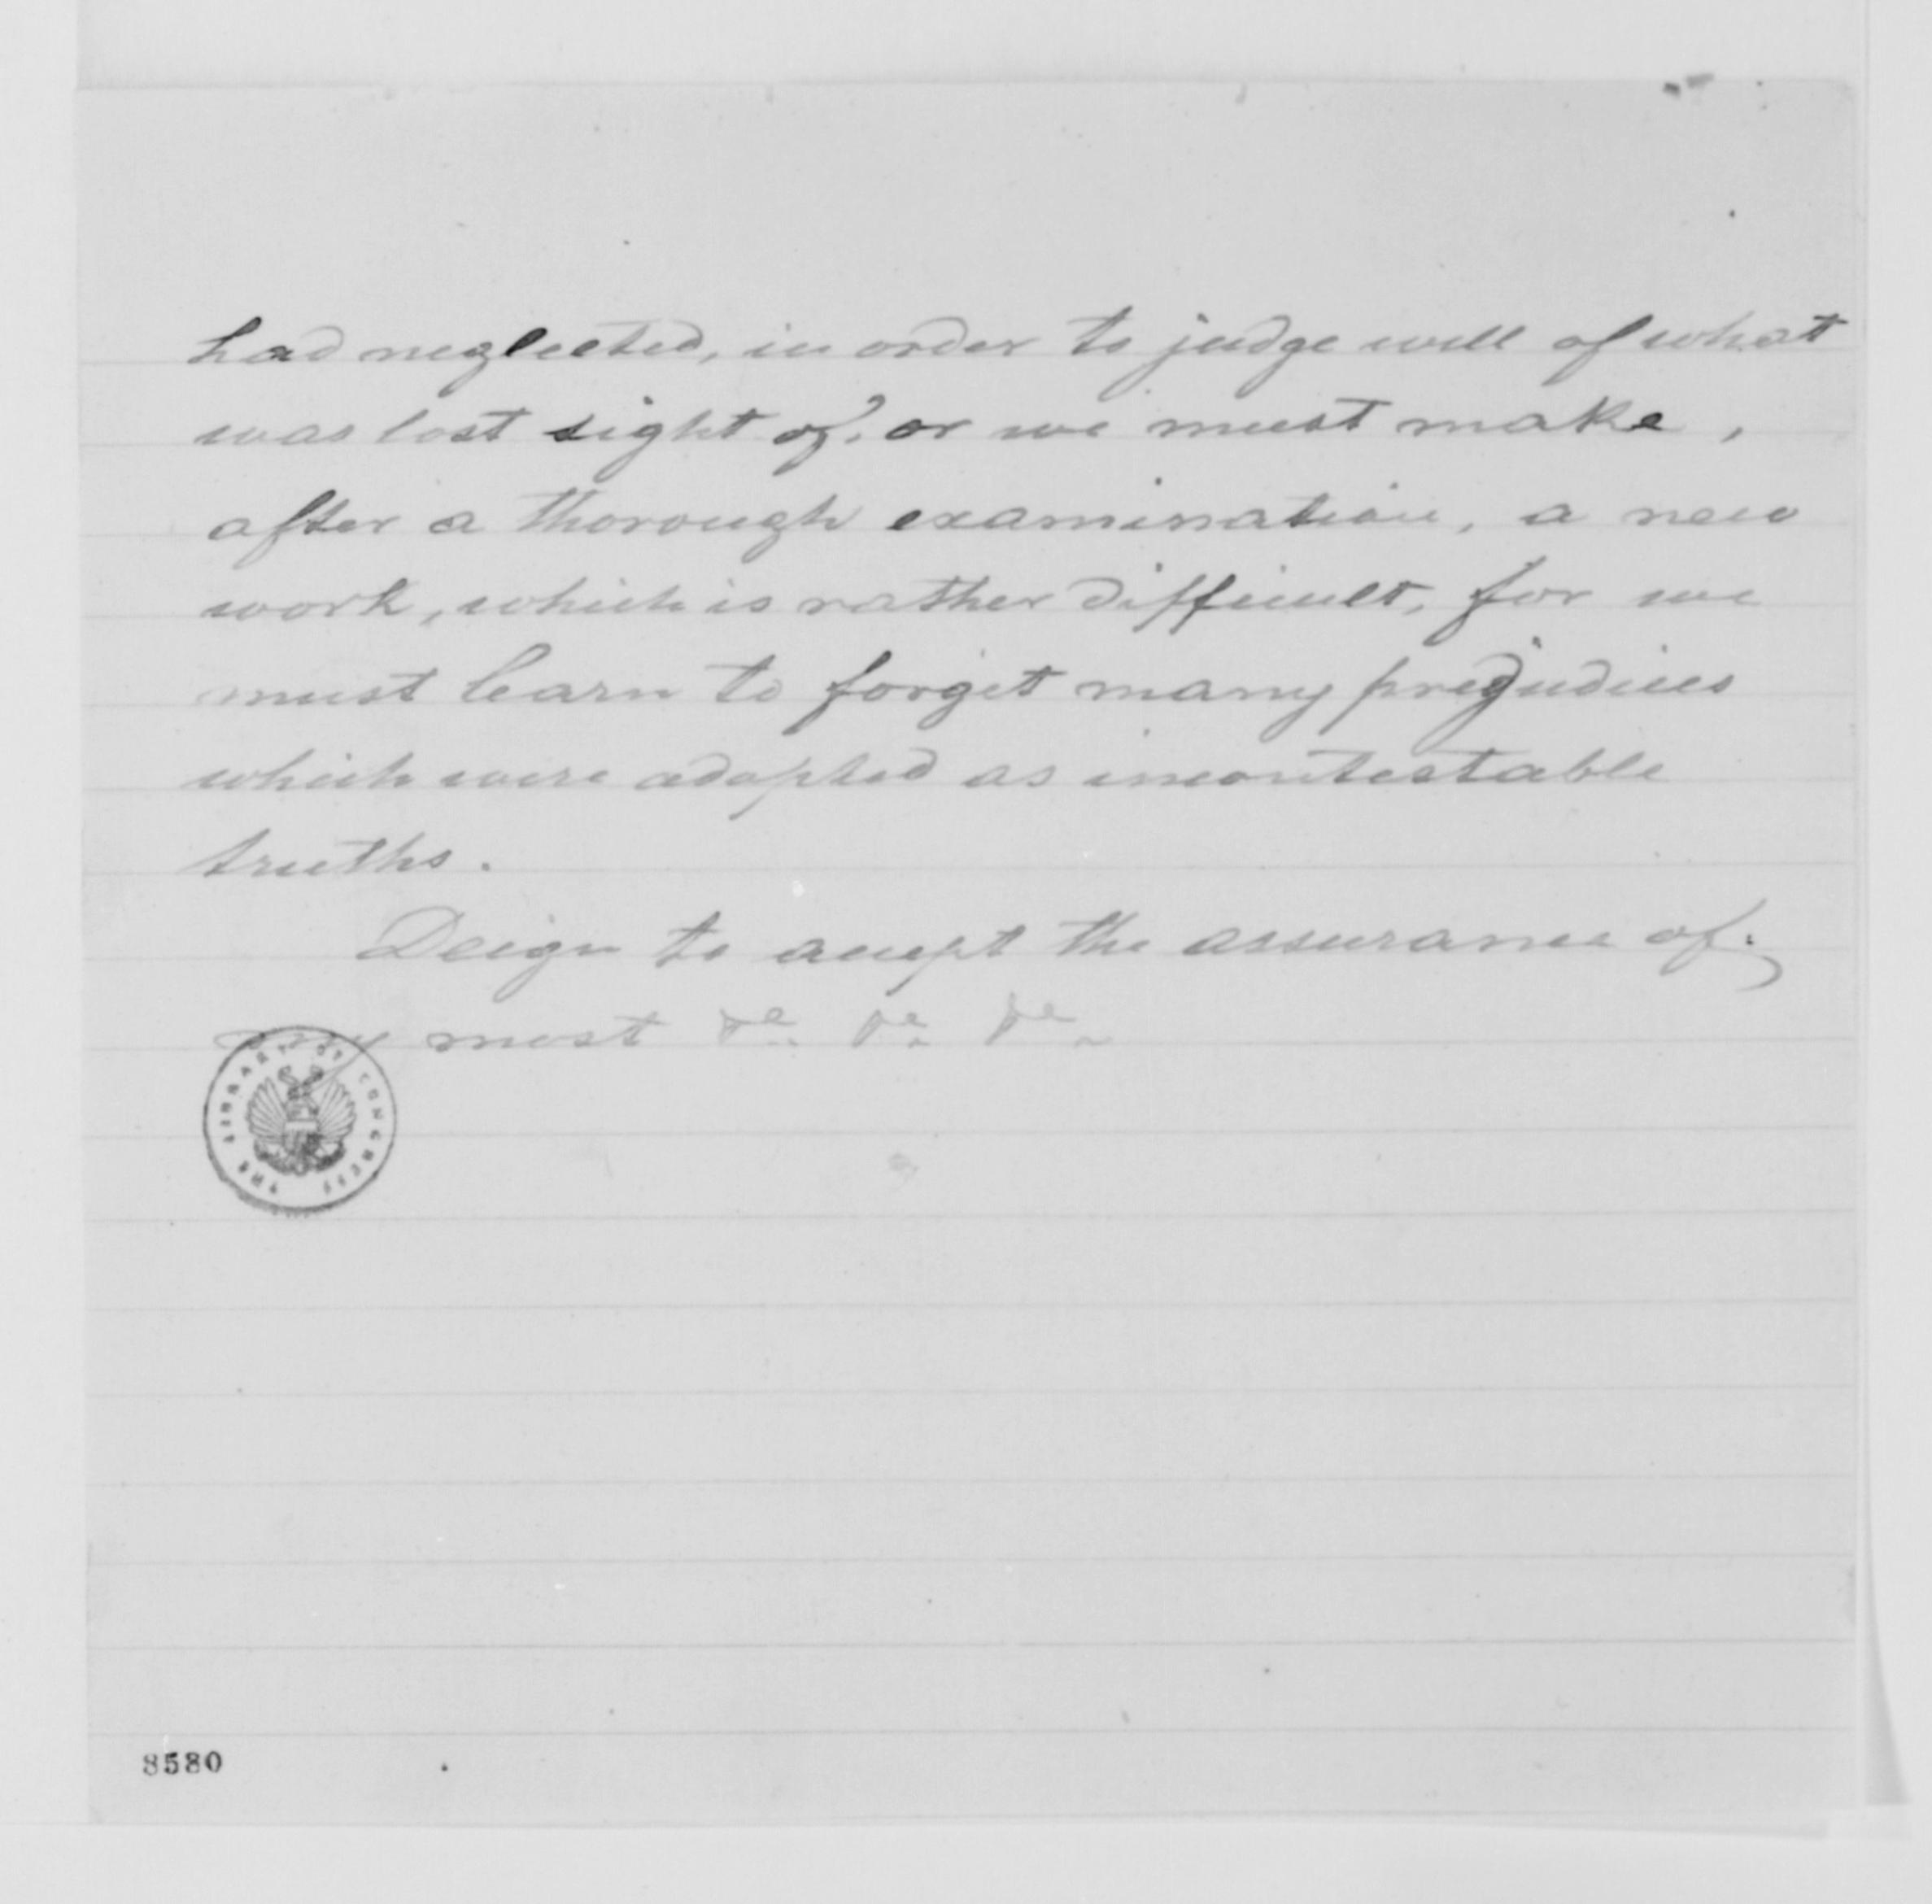 had neglected, in order to judge well of what
was lost sight of, or we must make,
after a thorough examination, a new
work, which is rather difficult, for we
must learn to forget many predjudices
which were adopted as incontestable
truths.
Deign to accept the assurance of
my most &c. &c. &c.
THE LIBRARY OF CONGRESS
8580